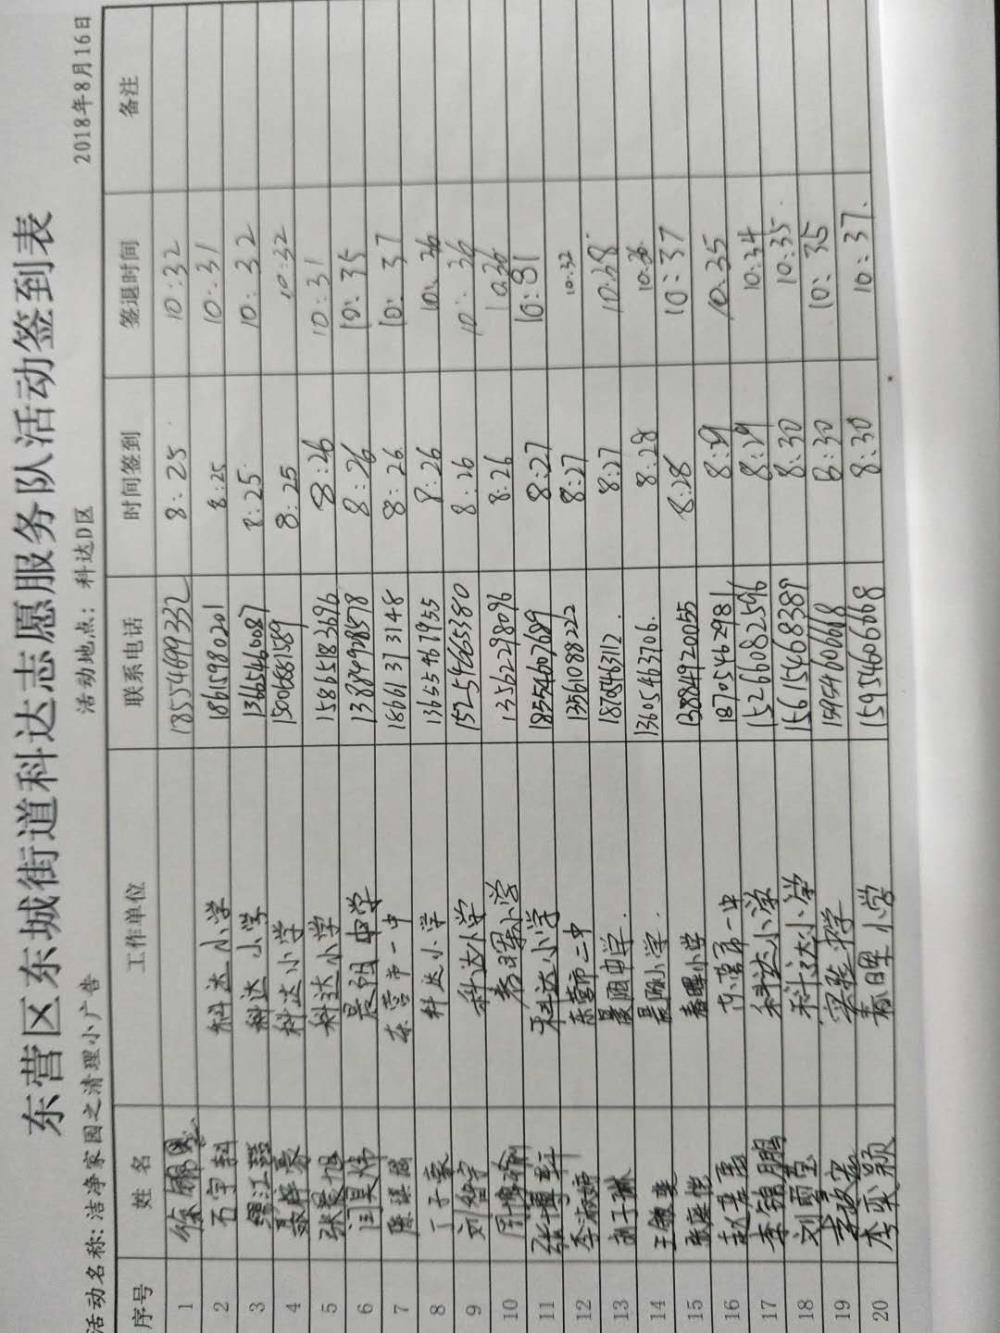 东营区东城街道科达志愿服务队活动签到表
活动名称：洁净家园之清理小广告 活动地点：科达D区 2018年8月16日
序号 姓名 工作单位 联系电话 时间签到 签退时间 备注
1 18554699332 8:25 10:32
2 石宇轩 科达小学 18615980201 8:25 10:31
3 科达小学 13665460087 8:25 10:32
4 科达小学 15066881589 8:25 10:32
5 张景旭 科达小学 15865183696 8:26 10:31
6 闫昊炜 晨阳中学 13884908578 8:26 10:35
7 东营市一中 18661373148 8:26 10:37
8 丁子豪 科达小学 13655467955 8:26 10:36
9 科达小学 15254665380 8:26 10:36
10 春晖小学 13562298096 8:26 10:36
11 张博轩 科达小学 18554607689 8:27 10:31
12 东营市二中 13561088222 8:27 10:32
13 胡子琳 晨阳中学. 8:27 10:38
14 晨阳小学. 13605463706. 8:28 10:36
15 春晖小学 13884920055 8:28 10:37
16 东营市一中 18705462981 8:29 10:35
17 李锦鹏 科达小学 15266082596 8:29 10:34
18 刘雨莹 科达小学 15615468389 8:30 10:35
19 实验中学 8:30 10:35
20 李奕颖 春晖小学 15954606068 8:30 10:37